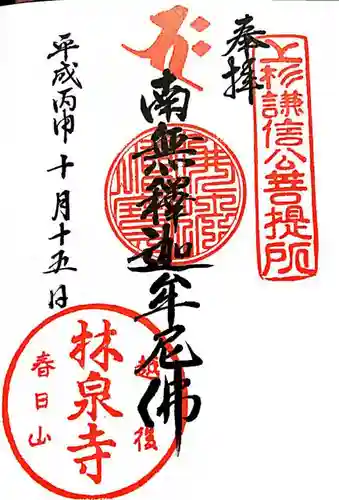 奉拝
上杉謙信公菩提所
南無釋迦牟尼佛
平成丙申十月十五日
越後
林泉寺
春日山